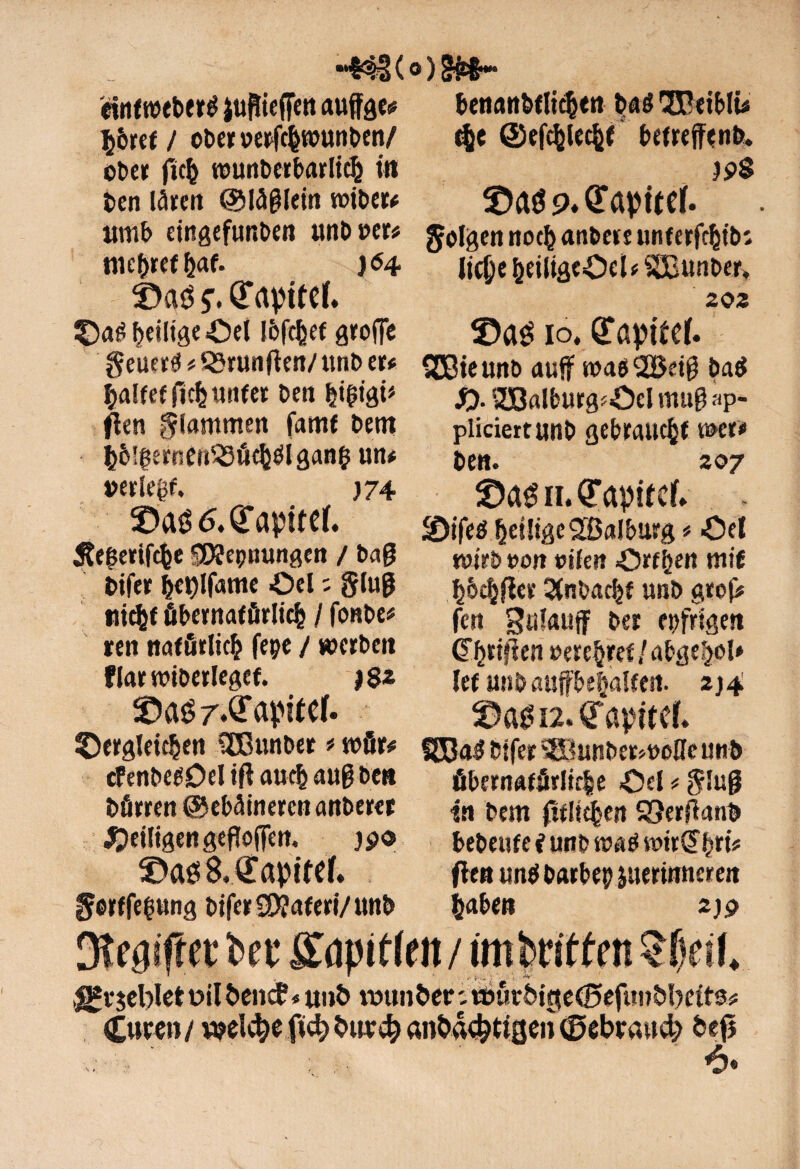 (o)
eintweders zufliessen auffge⸗
höret / oder verschwunden/
oder sich wunderbarlich in
den lären Gläßlein wider⸗
umb eingefunden und ver⸗
mehret hat. 164
Das 5. Capitel.
Das heilige Oel löschet grosse
Feuers⸗Brunsten/ und er⸗
haltet sich unter den hitzigi⸗
sten Flammen samt dem
höltzernen Büchsl gantz un⸗
verletzt. 174
Das 6. Capitel.
Ketzerische Meynungen / daß
diser heylsame Oel⸗Fluß
nicht übernatürlich / sonde⸗
ren natürlich seye / werden
klar widerleget. 182
Das 7. Capitel.
Dergleichen Wunder⸗wür⸗
ckendes Oel ist auch auß den
dürren Gebäineren anderer
Heiligen geflossen. 190
Das 8. Capitel.
Fortsetzung diser Materi/ und
benantlichen das Weibli⸗
che Geschlecht betreffend.
198
Das 9. Capitel.
Folgen noch andere unterschid⸗
liche heilige Oel⸗Wunder.
202
Das 10. Capitel.
Wie und auff was Weiß das
H. Walburg⸗Oel muß ap-
pliciert und gebraucht wer⸗
den. 207
Das 11. Capitel.
Dises heilige Walburg⸗Oel
wird von vilen Orthen mit
höchster Andacht und gros⸗
sen Zulauff der eyfrigen
Christen verehret / abgehol⸗
let und auffbehalten. 234
Das 12. Capitel.
Was diser Wunder⸗volle und
übernatürliche Oel⸗Fluß
in dem sittlichen Verstand
bedeute? und was wir Chri⸗
sten uns darbey zuerinneren
haben 239
Register der Capitlen / im dritten Theil.
Erzehlet vil denck⸗und wunder⸗würdige Gesundheits⸗
Curen/ welche sich durch andächtigen Gebrauch deß
H.